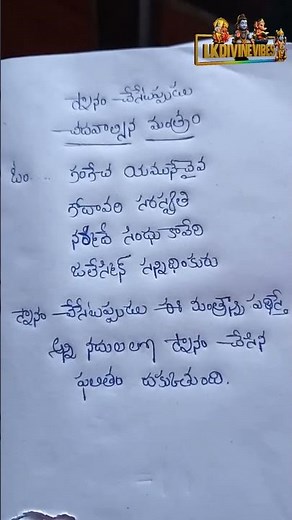 LKDIVINEVIBES
స్నానం చేసేటప్పుడు
చదవాల్సిన మంత్రం
ఓం .. గంగేచ యమునేచైవ
గోదావరి సరస్వతి
నర్మదే సింధు కావేరి
జలేస్మిన్ సన్నిధింకురు
స్నానం చేసేటప్పుడు ఈ మంత్రాన్ని పఠిస్తే
అన్ని నదులలో స్నానం చేసిన
ఫలితం దక్కుతుంది.